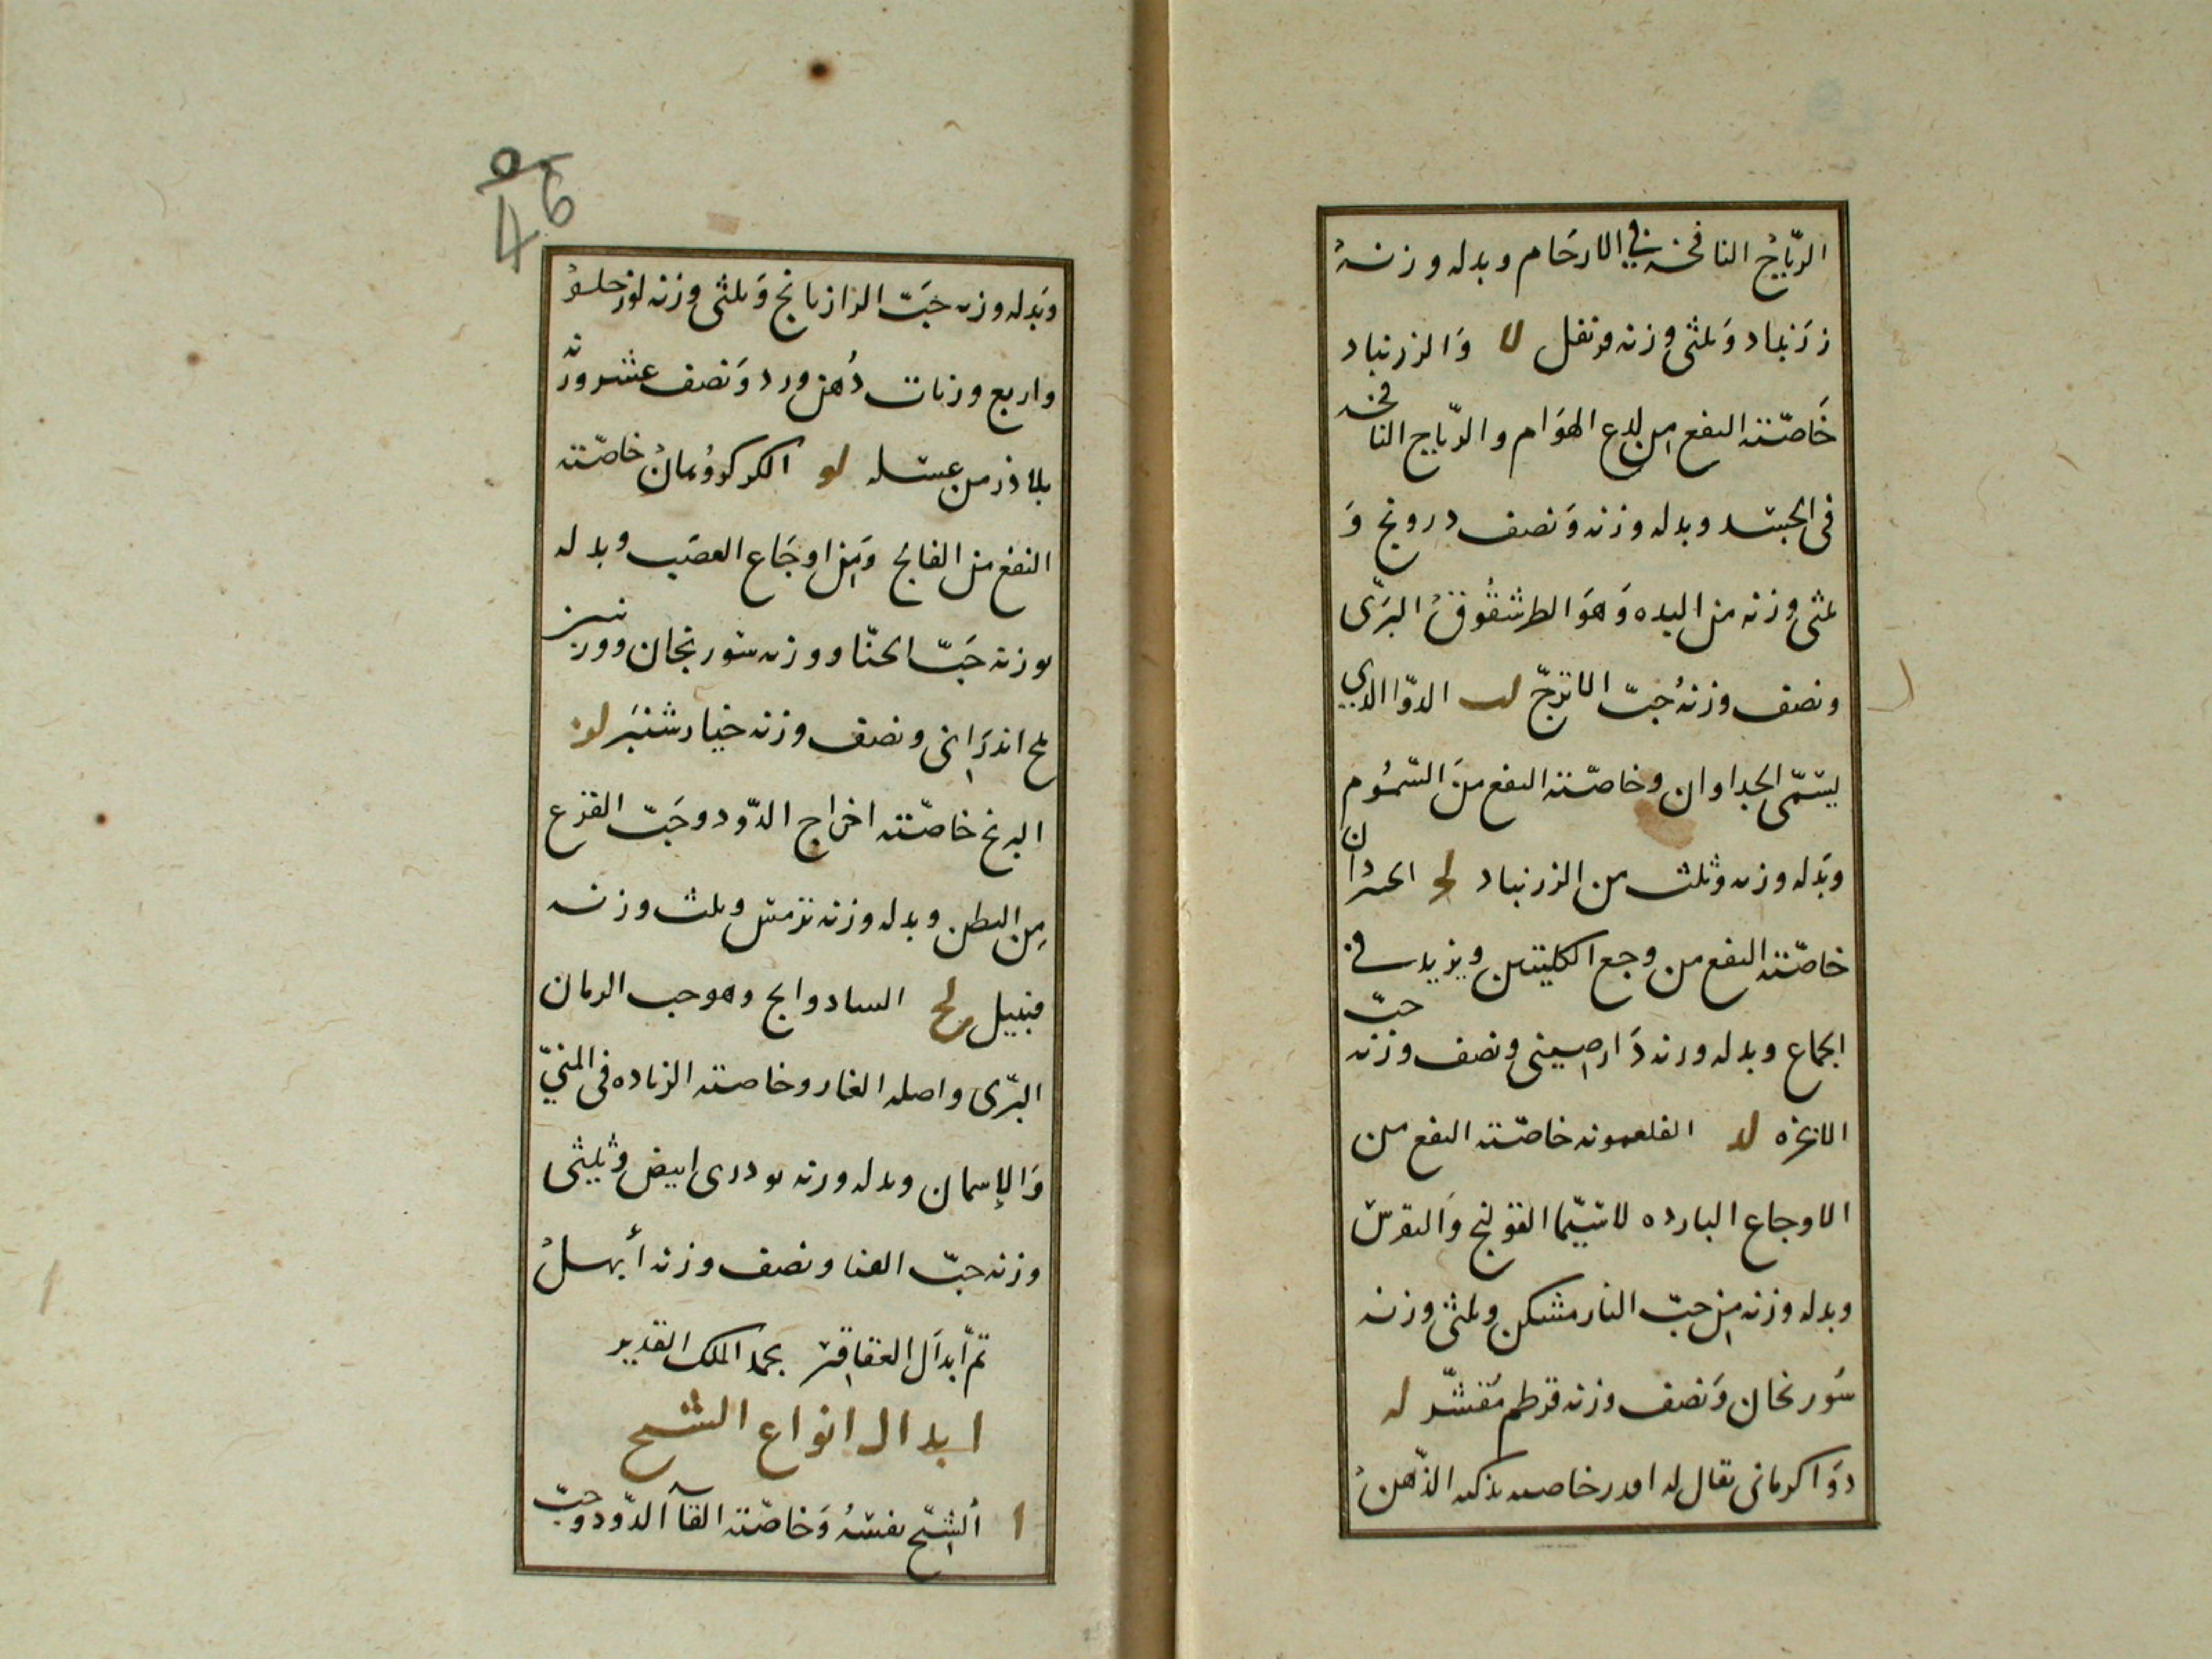 الرّياحُ النافخه في الارحَام وبدله وزنهُ
زرَنباد وَثلثى وزنه قرنفل لا وَالزرنباد
خَاصّته النفع من لدع الهوَام والرّياح النافخه
فى الجسد وبدله وزنه وَنصف درونج وَ
ثلثى وزنه من البده وَهوَ الطرشقُوقُ البرّى
ونصف وزنهُ حبّ الاترجّ لب الدوّا الذي
يسَمّى الجداوان وخاصّته النفع منَ السّمُوم
وبَدله وزنه وثلث من الزرنباد لج
خاصّته النفع من وجع الكليتين ويزيد في
الجماع وبدله وزنه دَارصينى ونصف وزنه حبّ
الانجره لد خاصّته النفع من
الاوجاع البارده لاسيّما القولنج وَالنقرس
وبدله وزنه من حبّ النارمشكن وثلثى وزنه
سَورنجان وَنصف وزنه قرطم مُقشّر له
دوَا كرمانى يقال له خاصيته يذكى الذّهنُ
46
وبَدله وزنه حَبّ الرازيانج وَثلثى وزنه
واربع وزنات دُهن ورد وَنصف عشر وزنه
بلاذر من عسَله لو خاصّته
النفع من الفالج وَمن اوجَاع العصَب وبدله
بوزنه حَبّ الحنّا ووزنه سَورنجان
ملح اندرَانى ونصف وزنه خيارشنبَر لز
البرنج خاصّته اخراج الدّود وحَبّ القرع
مِن البطن وبدله وزنه ترمس وثلث وزنه
قنبيل لح وهو حب الرمان
البرّى واصله المغار وخاصته الزياده فى المنيّ
وَالإسمان وبدله وزنه بودرى ابيض وثُلثى
وزنه حبّ القثا ونصف وزنه أبهلُ
تمّ أبدَال العقاقير بحمد الملك القدير
ابدال انواع الشيح
ا ألشيّح نفسَهُ وَخاصّته القآ الدّود وحبّ